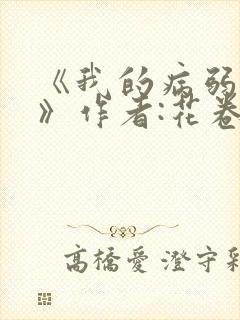 《我的病弱
》作者:花卷
高橋愛 澄守彩